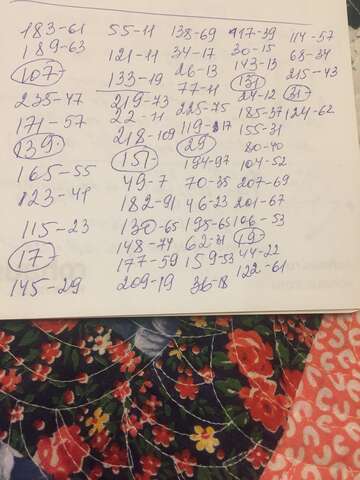 183-61
189-63
107-
235-47
171-57
139-
165-55
123-41
115-23
17-
145-29
55-11
121-11
133-19
219-73
22-11
218-109
151-
49-7
182-91
130-65
148-74
177-59
209-19
138-69
34-17
26-13
77-11
225-75
119-17
29-
194-97
70-35
46-23
195-65
62-31
159-53
36-18
117-39
30-15
143-13
131-
24-12
185-37
155-31
80-40
104-52
207-69
201-67
106-53
19-
44-22
122-61
114-57
68-34
215-43
31-
124-62